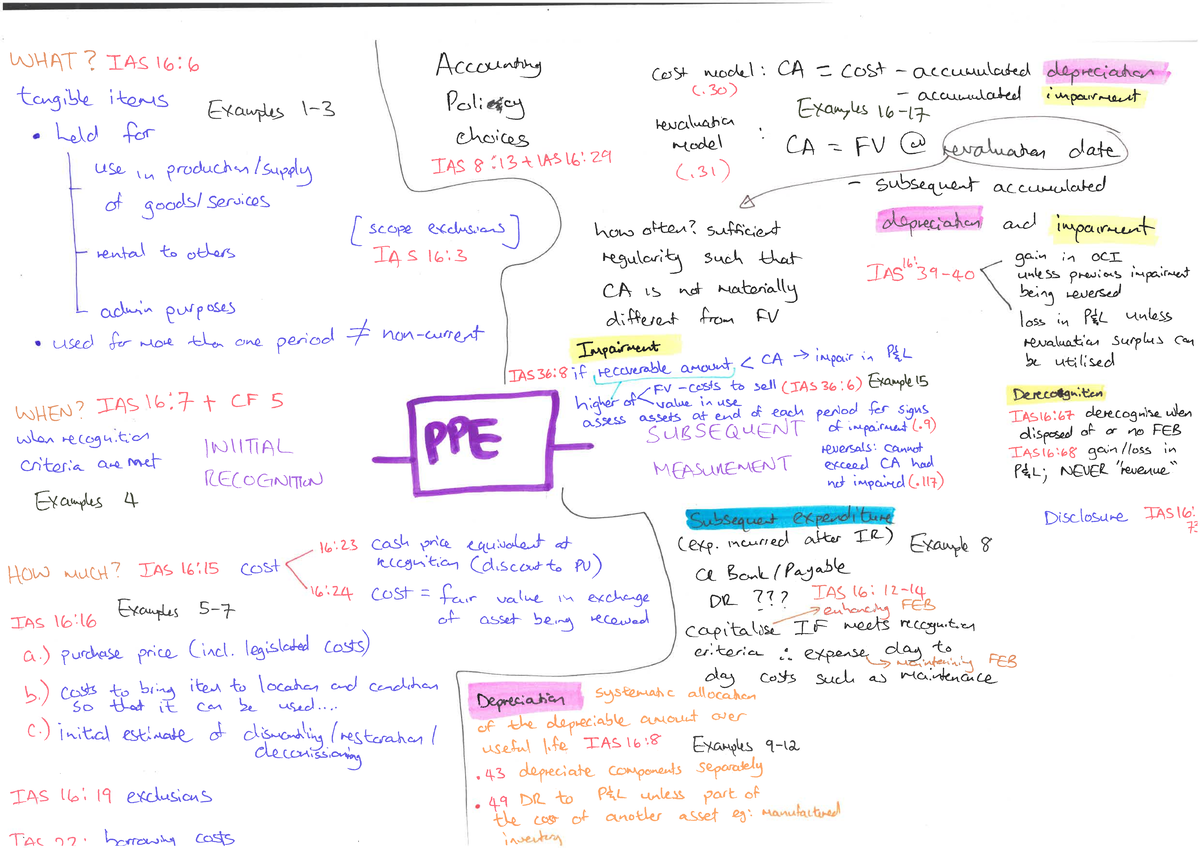 WHAT? IAS 16:6
tangible items
Examples 1-3
• held for
use in production/supply
of goods/services
rental to others
admin purposes
• used for more than one period ≠ non-current
[scope exclusions]
IAS 16:3
WHEN? IAS 16:7 + CF 5
when recognition
criteria are met
INITIAL
RECOGNITION
Examples 4
HOW MUCH? IAS 16:15 cost
16:23 cash price equivalent at
recognition (discount to PV)
16:24 cost = fair value in exchange
of asset being received
IAS 16:16 Examples 5-7
a.) purchase price (incl. legislated costs)
b.) costs to bring item to location and condition
so that it can be used....
c.) initial estimate of dismantling/restoration/
decomissioning
IAS 16:19 exclusions
IAS 22: borrowing costs
PPE
Accounting
Policy
choices
IAS 8:13 + IAS 16:29
cost model: CA = cost - accumulated depreciation
(.30) - accumulated impairment
Examples 16-17
revaluation
model : CA = FV @ revaluation date
(.31)
- subsequent accumulated
depreciation and impairment
how often? sufficient
regularity such that
CA is not materially
different from FV
IAS 16: 39-40
gain in OCI
unless previous impairment
being reversed
loss in P&L unless
revaluation surplus can
be utilised
Impairment
IAS 36:8 if recoverable amount < CA → impair in P&L
higher of FV - costs to sell (IAS 36:6) Example 15
value in use
assess assets at end of each period for signs
of impairment (.9)
SUBSEQUENT
MEASUREMENT
reversals: cannot
exceed CA had
not impaired (.117)
Derecognition
IAS16:67 derecognise when
disposed of or no FEB
IAS16:68 gain/loss in
P&L; NEVER "revenue"
Disclosure IAS 16:
73
Subsequent expenditure
(exp. incurred after IR) Example 8
CR Bank/Payable
DR ??? IAS 16: 12-14
enhancing FEB
capitalise IF meets recognition
criteria ∴ expense day to
maintaining FEB
day costs such as maintenance
Depreciation systematic allocation
of the depreciable amount over
useful life IAS 16:8 Examples 9-12
.43 depreciate components separately
.49 DR to P&L unless part of
the cost of another asset eg: manufactured
inventory